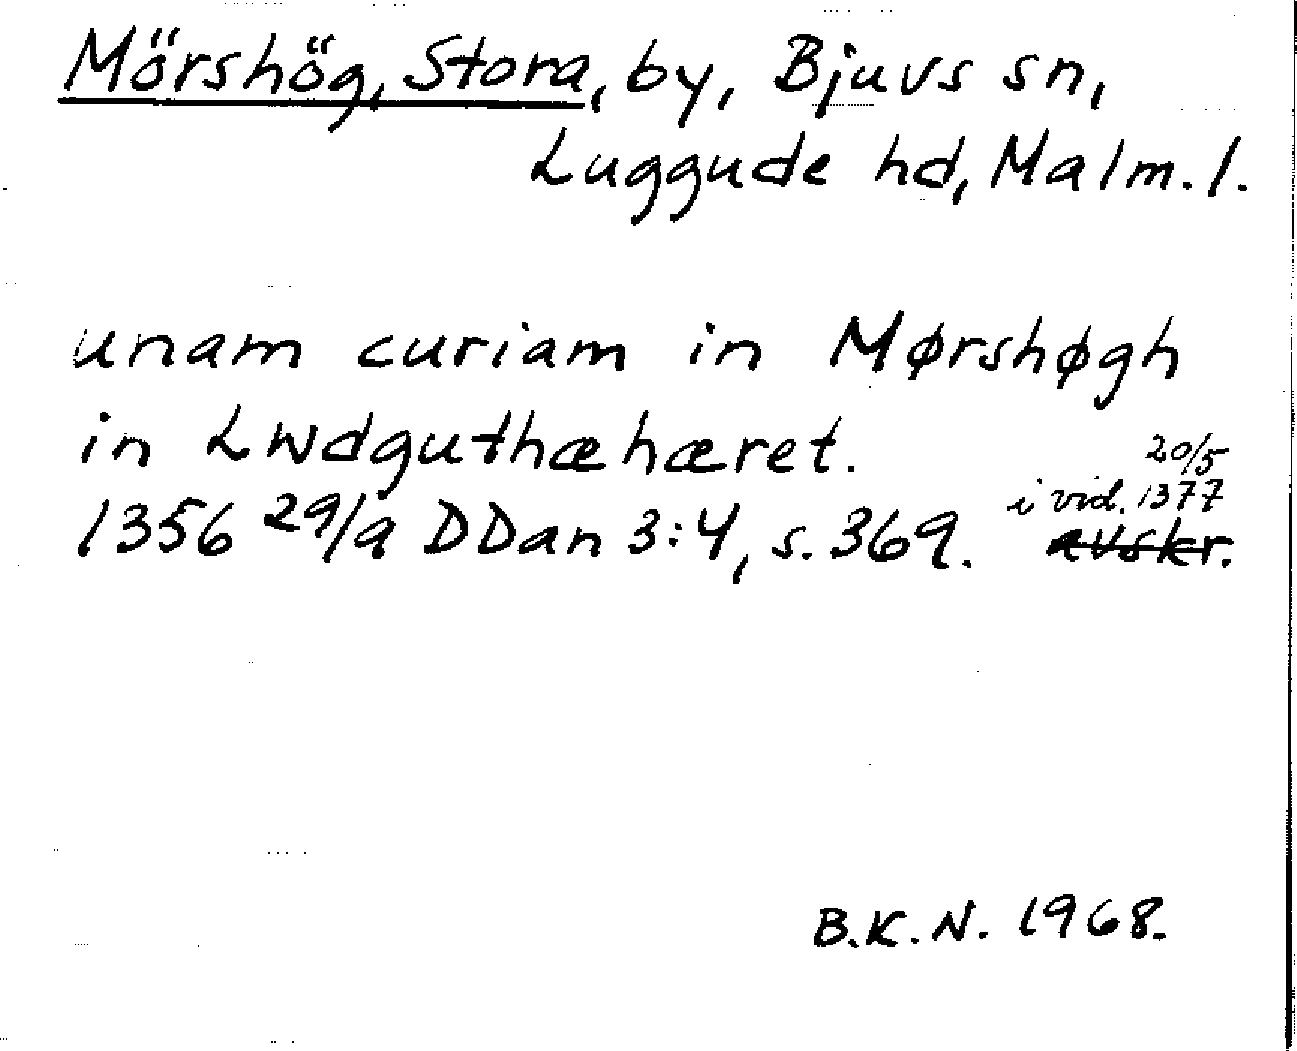 Mörshög, Stora, by, Bjuvs sn,
Luggude hd, Malm. l.
unam curiam in Mørshøgh
in Lwdguthæhæret.
1356 29/9 DDan 3:4, s. 369. i vid. 20/5 1377
avskr.
B.K.N. 1968.